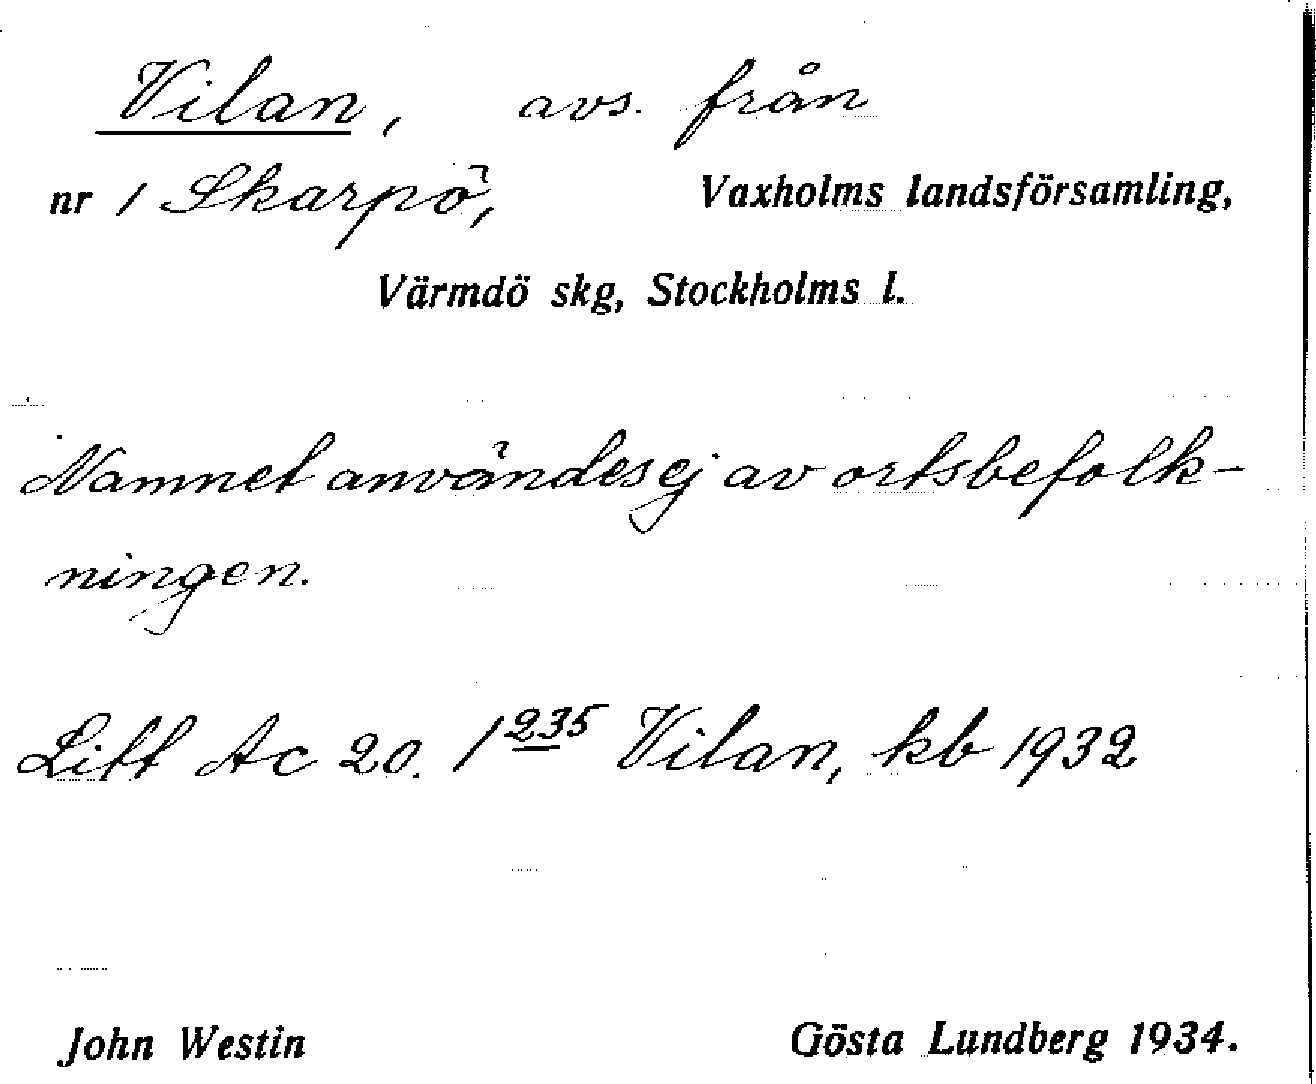 Vilan, avs. från
nr 1 Skarpö, Vaxholms landsförsamling,
Värmdö skg, Stockholms l.
Namnet användes ej av ortsbefolk-
ningen.
Litt Ac 20. 1 235 Vilan, kb 1932
John Westin Gösta Lundberg 1934.